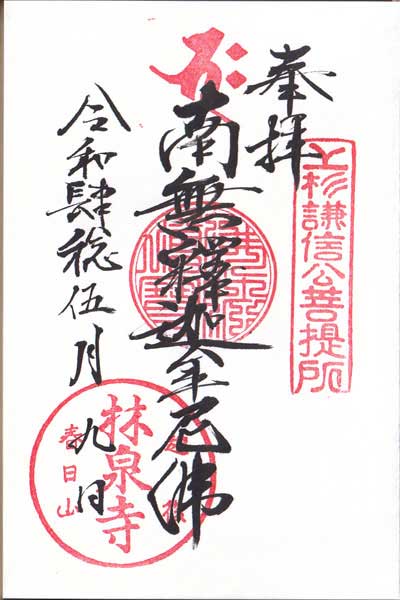 奉拝
上杉謙信公菩提所
南無釋迦牟尼佛
令和肆稔伍月
九日
春日山
林泉寺